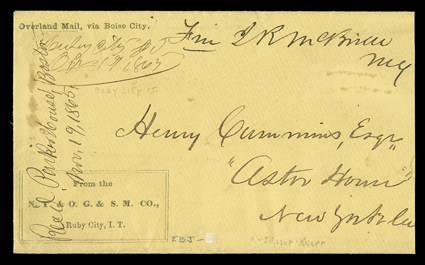 Overland Mail, via Boise City.
Ruby City I T
Free J R McBride
MC
Henry Cummins, Esqr
"Astor House"
New York
Recd. Parker House, Boston
Nov. 19, 1865,
From the
N. Y. & O. G. & S. M. CO.,
Ruby City, I. T.